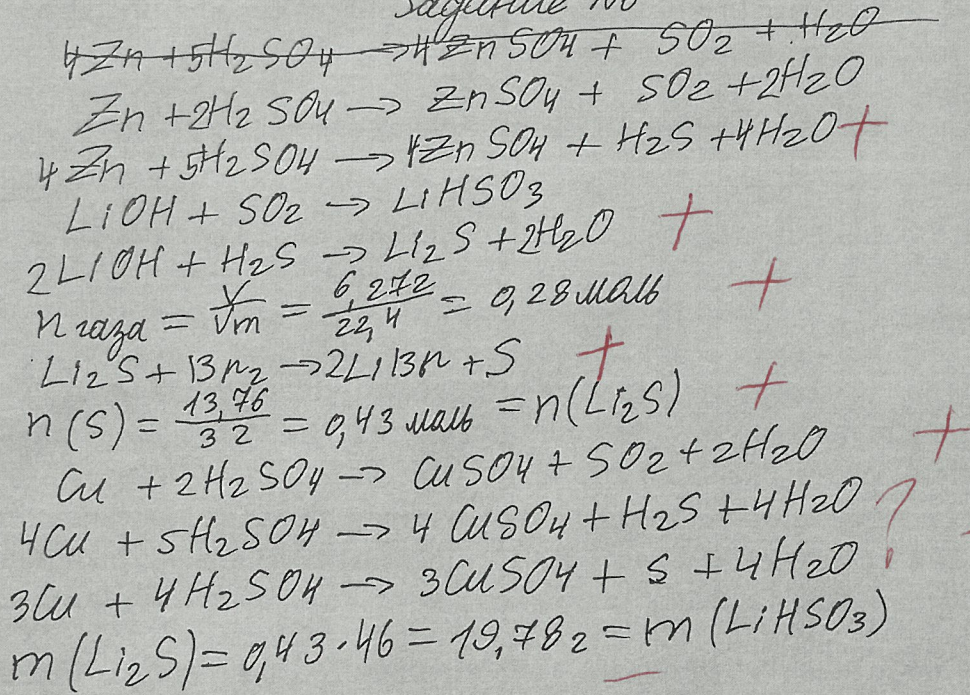 Задание №
4Zn + 5H₂SO₄ → 4ZnSO₄ + SO₂ + H₂O
Zn + 2H₂SO₄ → ZnSO₄ + SO₂ + 2H₂O
4Zn + 5H₂SO₄ → 4ZnSO₄ + H₂S + 4H₂O +
LiOH + SO₂ → LiHSO₃
2LiOH + H₂S → Li₂S + 2H₂O +
n газа = V/Vm = 6,272/22,4 = 0,28 моль +
Li₂S + Br₂ → 2LiBr + S +
n(S) = 13,76/32 = 0,43 моль = n(Li₂S) +
Cu + 2H₂SO₄ → CuSO₄ + SO₂ + 2H₂O +
4Cu + 5H₂SO₄ → 4CuSO₄ + H₂S + 4H₂O ?
3Cu + 4H₂SO₄ → 3CuSO₄ + S + 4H₂O
m(Li₂S) = 0,43·46 = 19,78г = m(LiHSO₃)